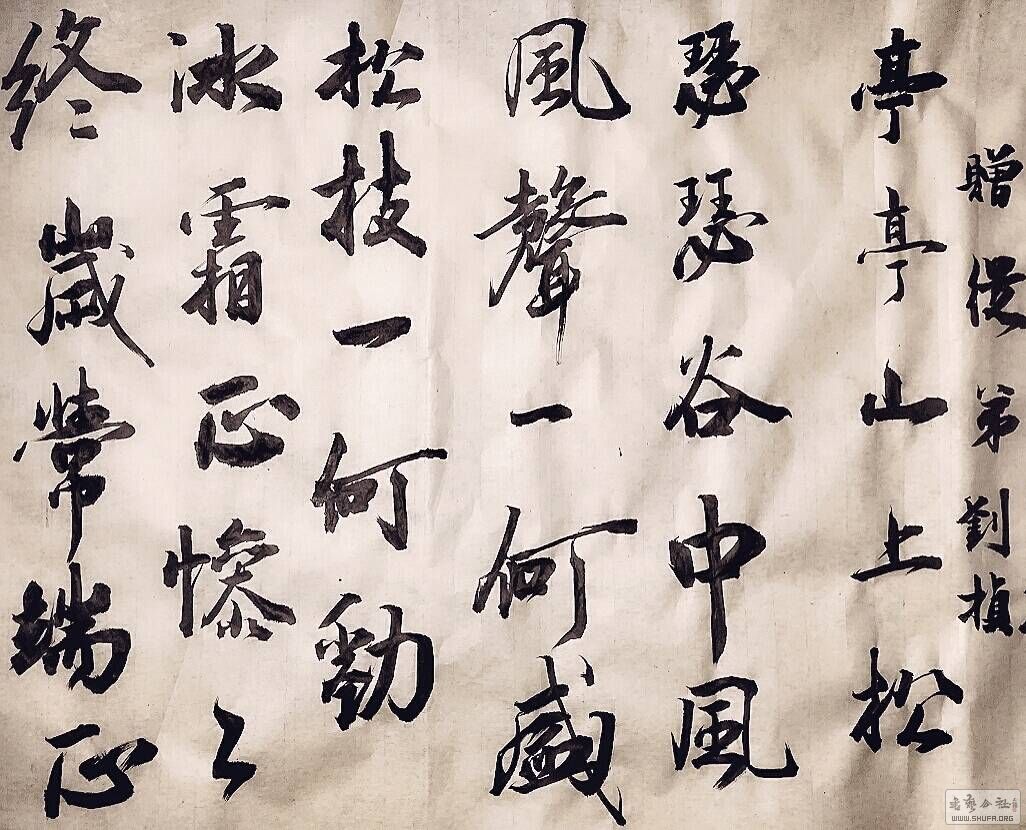 贈從弟劉楨
亭亭山上松
瑟瑟谷中風
風聲一何盛
松枝一何勁
冰霜正慘〻
終歲常端正
WWW.SHUFA.ORG